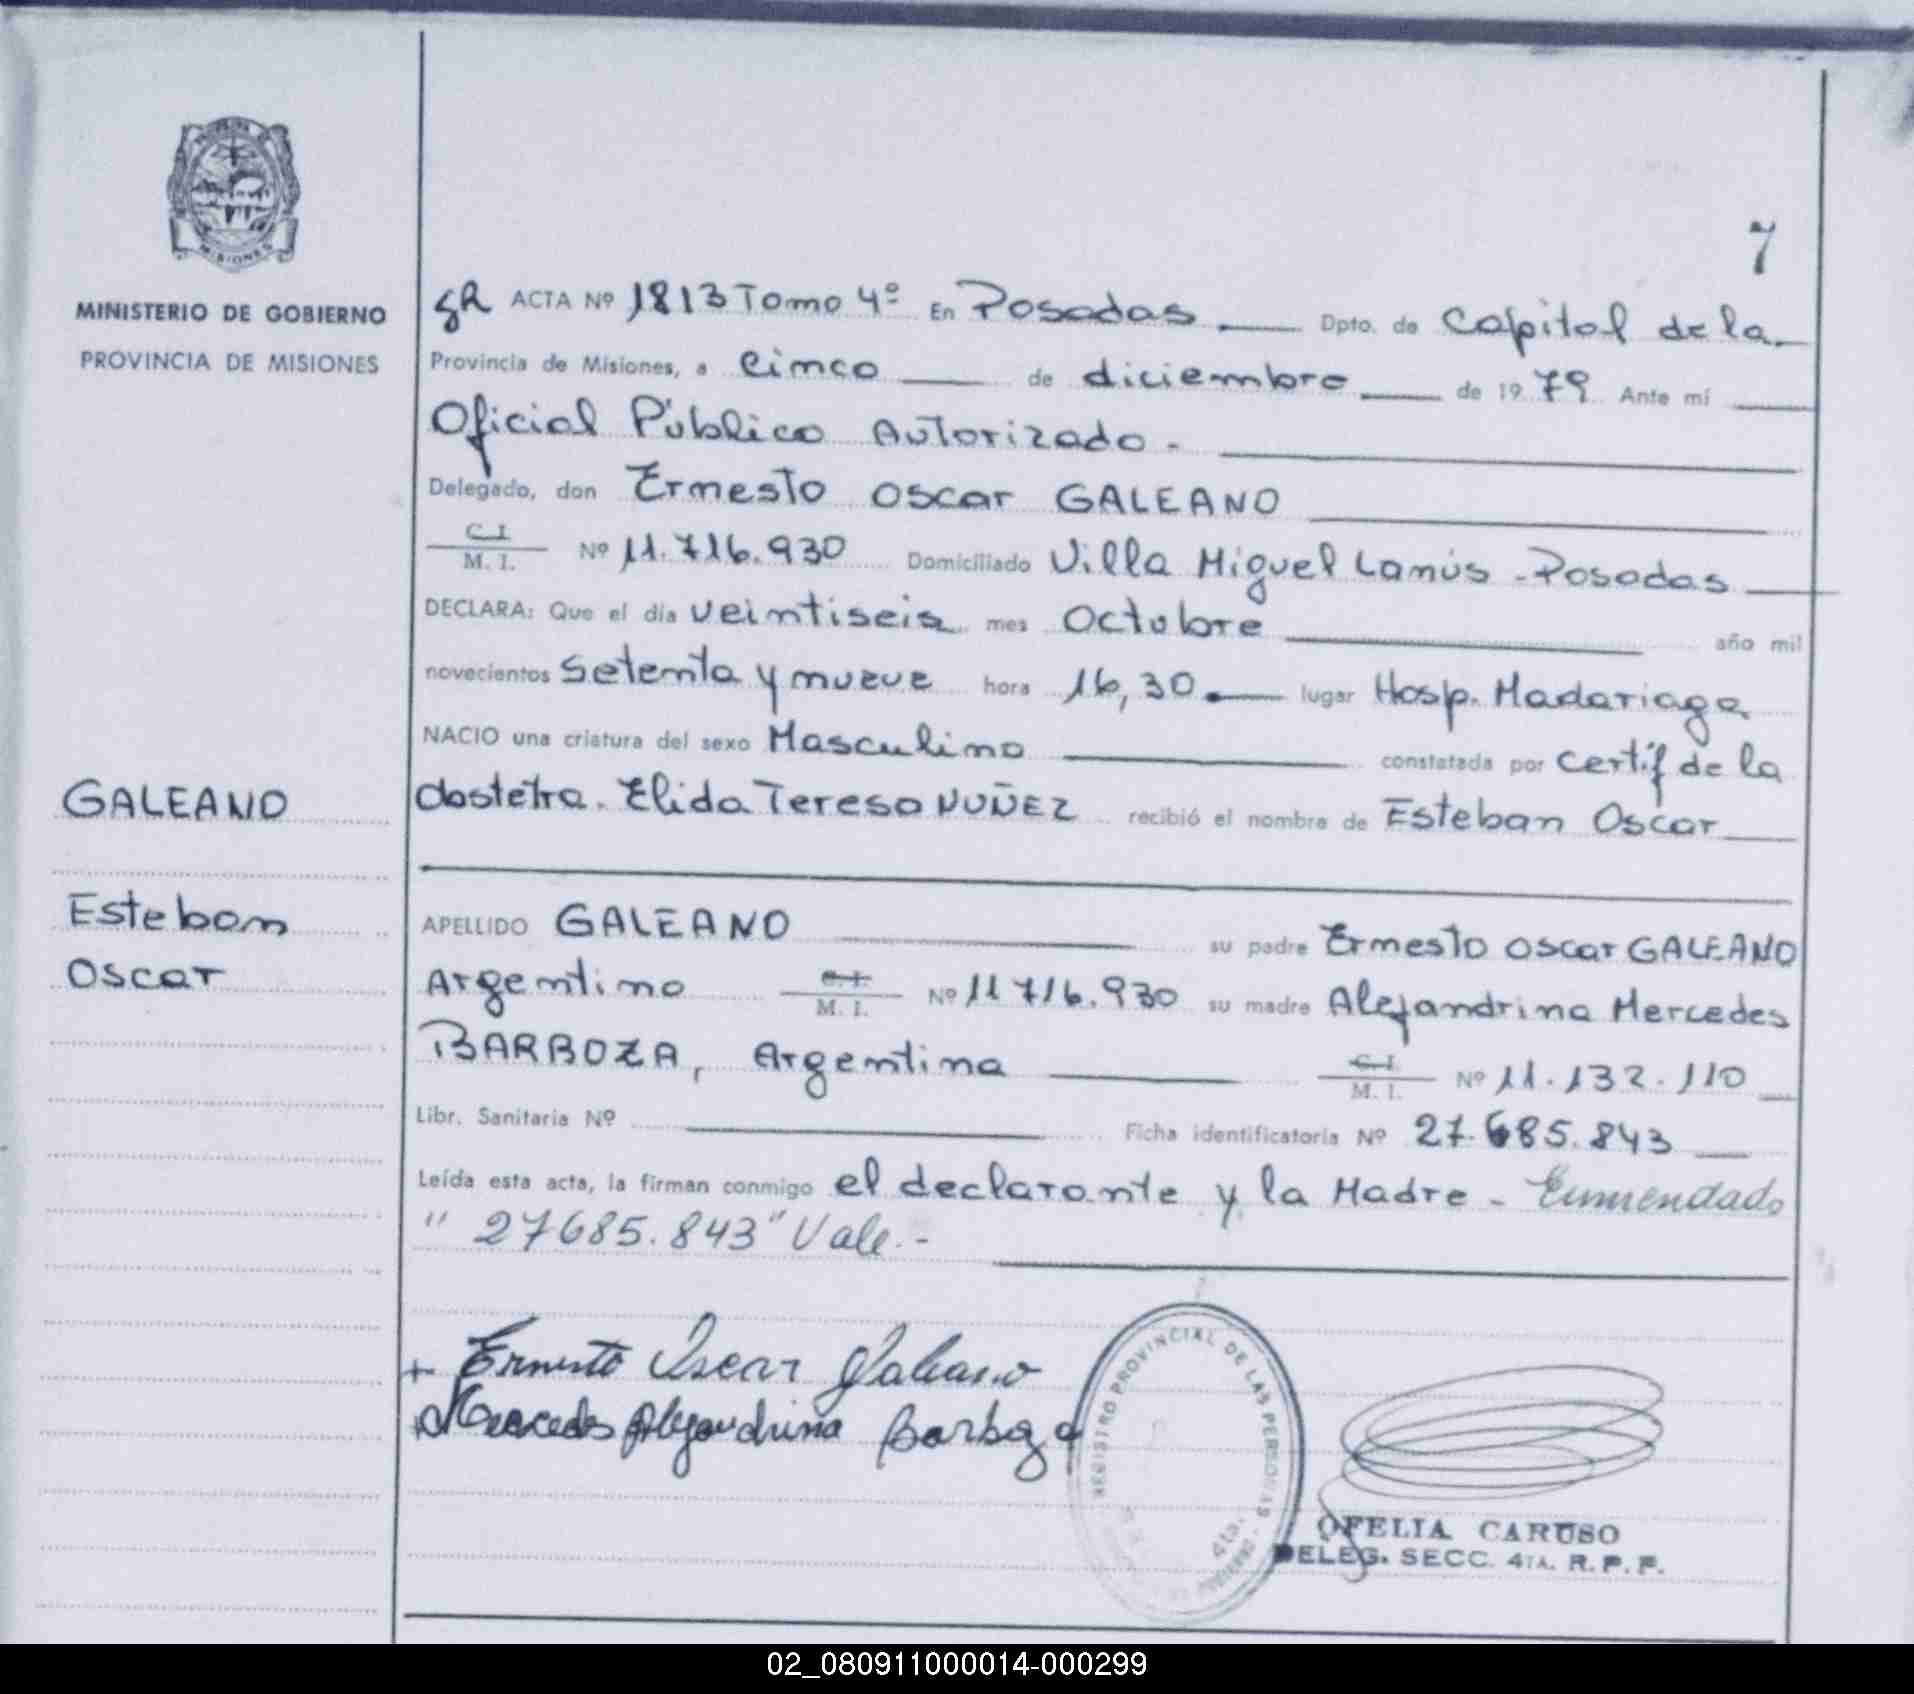 MISIONES
MINISTERIO DE GOBIERNO
PROVINCIA DE MISIONES
GALEANO
Esteban
Oscar
7
ACTA Nº 1813 Tomo 4º En Posadas Dpto. de Capital de la
Provincia de Misiones, a Cinco de diciembre de 1979 Ante mí
Oficial Público Autorizado.
Delegado, don Ernesto Oscar GALEANO
C.I. M. I. Nº 11.716.930 Domiciliado Villa Miguel Lanús - Posadas
DECLARA: Que el día veintiseis mes Octubre año mil
novecientos setenta y nueve hora 16,30 lugar Hosp. Madariaga
NACIO una criatura del sexo Masculino constatada por certif de la
obstetra. Elida Teresa NUÑEZ recibió el nombre de Esteban Oscar
APELLIDO GALEANO su padre Ernesto Oscar GALEANO
Argentino C.I. M. I. Nº 11 716.930 su madre Alejandrina Mercedes
BARBOZA, Argentina C.I. M. I. Nº 11.132.110
Libr. Sanitaria Nº Ficha identificatoria Nº 27.685.843
Leída esta acta, la firman conmigo el declarante y la Madre - Enmendado
" 27685.843" Vale. -
Ernesto Oscar Galeano
Mercedes Alejandrina Barboza
REGISTRO PROVINCIAL DE LAS PERSONAS
4ta.
OFELIA CARUSO
DELEG. SECC. 4TA. R. P. P.
02_080911000014-000299